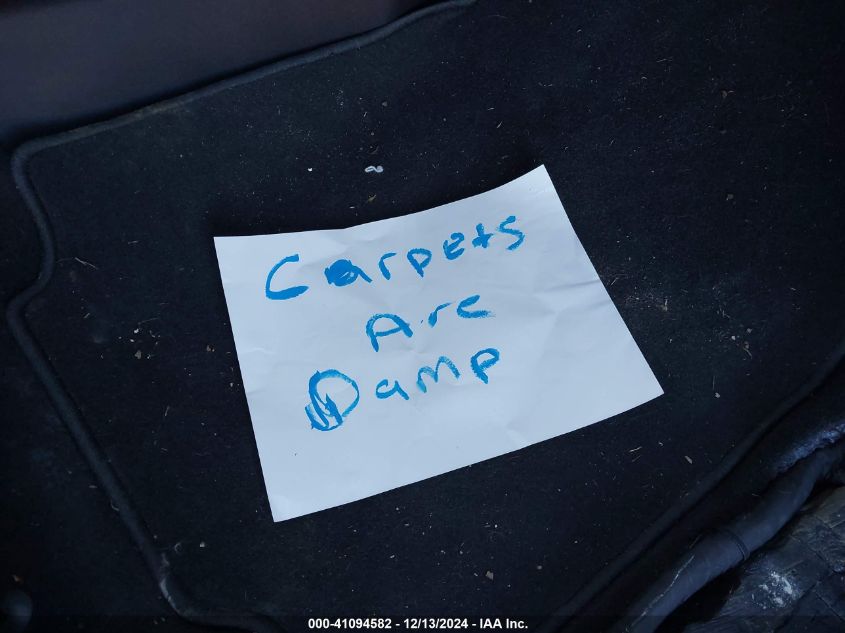 Carpets
Are
Damp
000-41094582 - 12/13/2024 - IAA Inc.